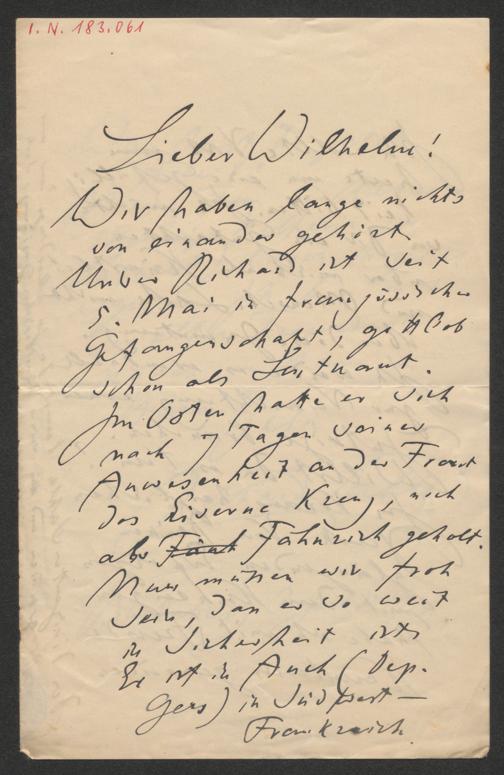 I. N. 183.061
Lieber Wilhelm!
Wir haben lange nichts
von einander gehört.
Unser Richard ist seit
5. Mai in französischer
Gefangenschaft, gottlob
schon als Leutnant.
Im Osten hatte er sich
nach 7 Tagen seiner
Anwesenheit an der Front
das Eiserne Kreuz, noch
als Fähnrich geholt.
Nun müssen wir froh
sein, dass er so weit
in Sicherheit ist.
Er ist in Auch (Dep.
Gers) in Südwest-
Frankreich.